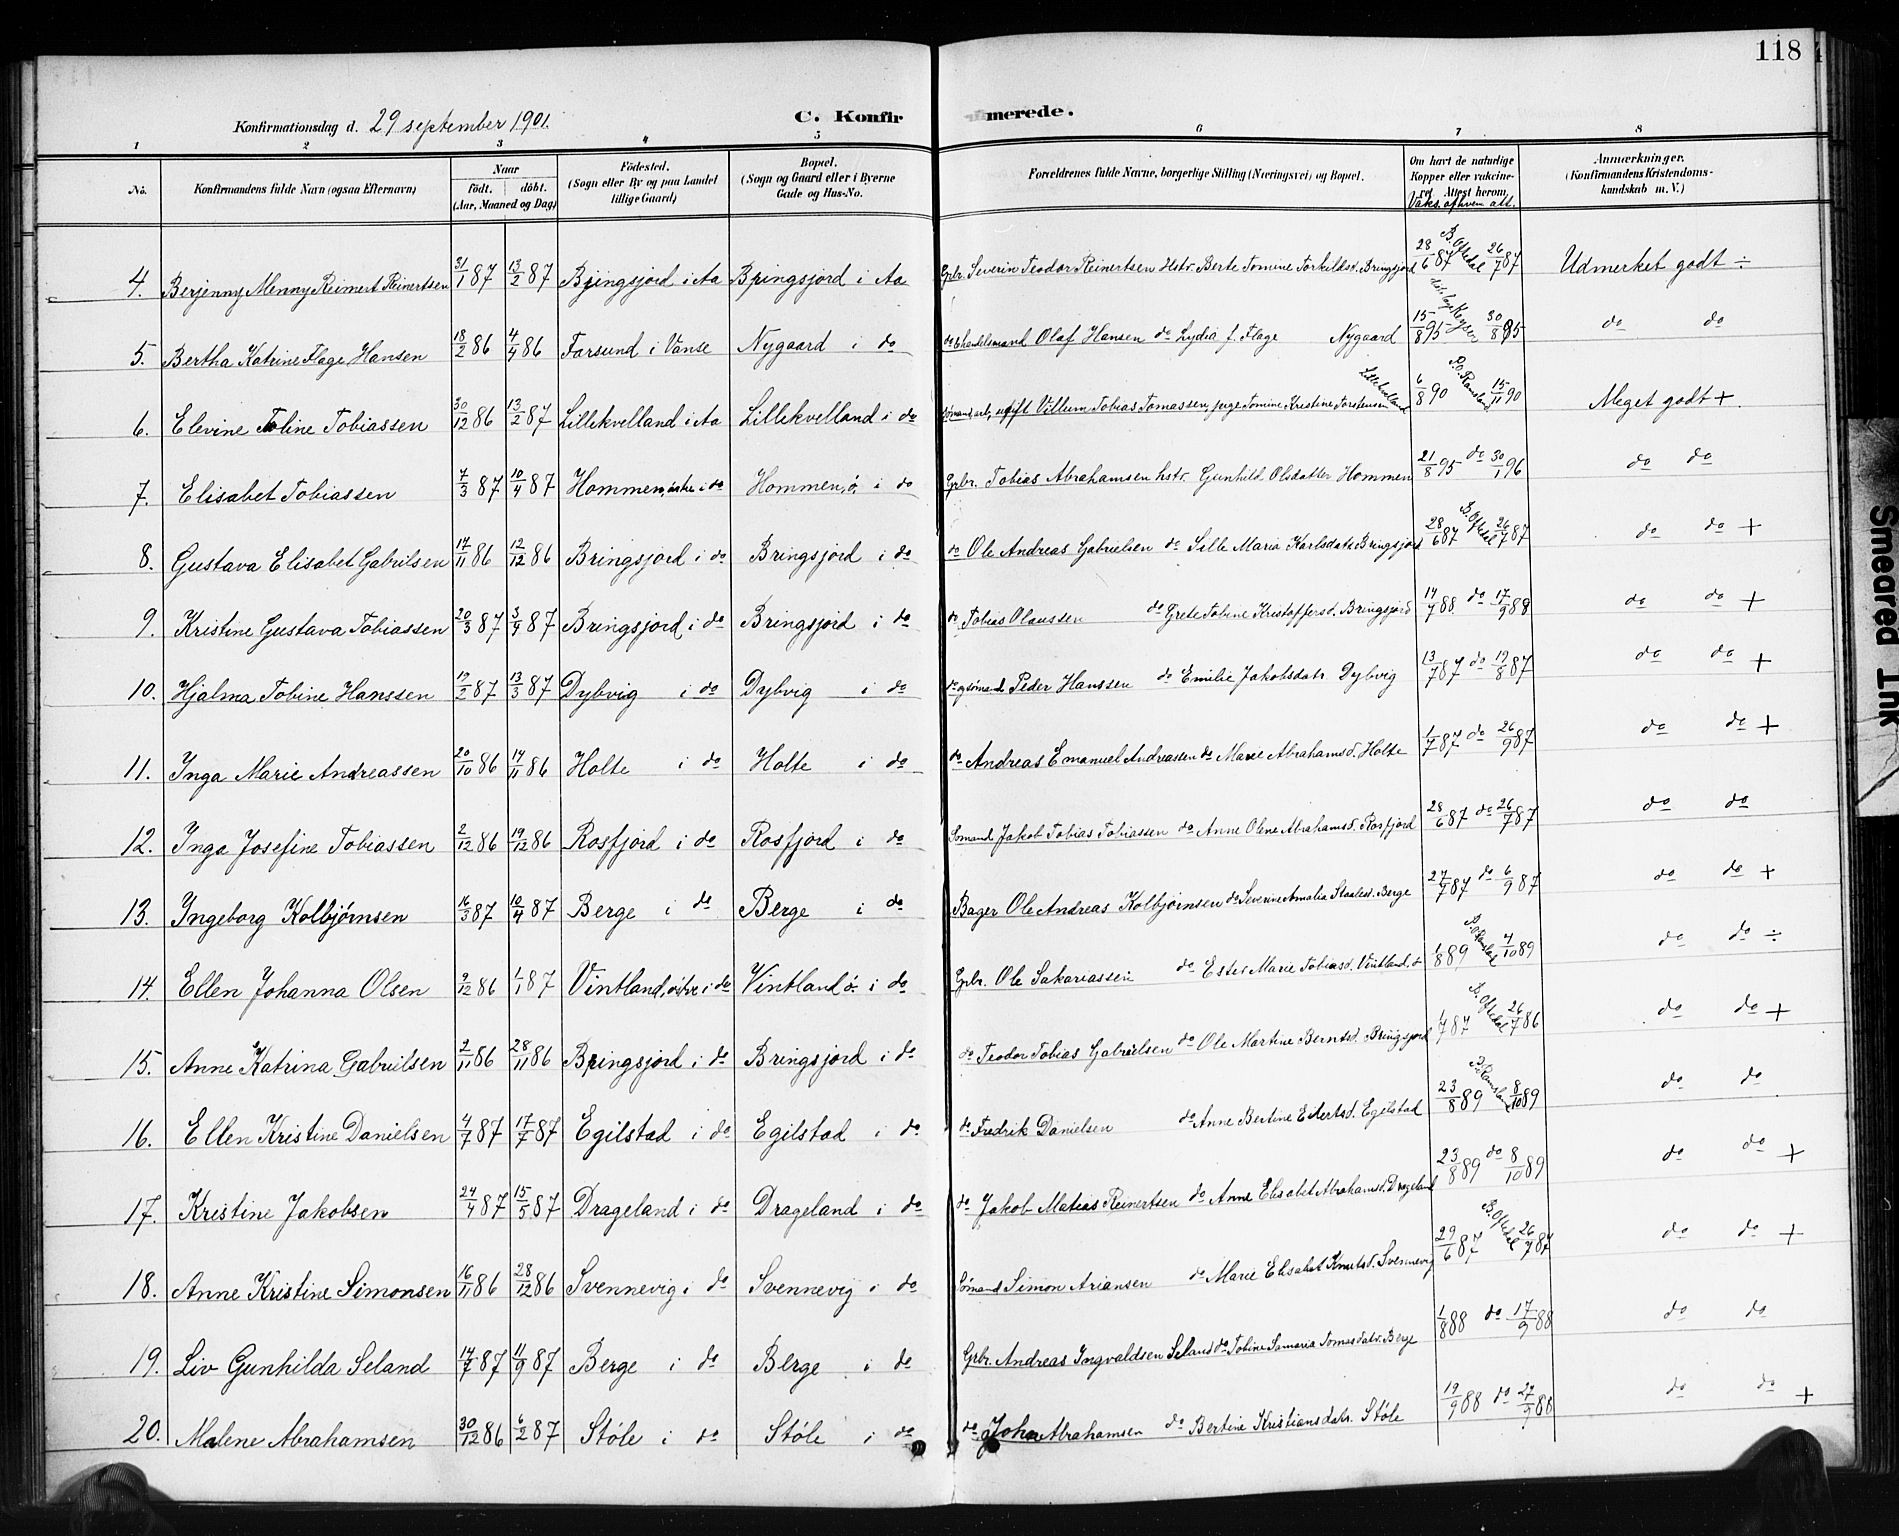 118
Konfirmationsdag d. 29 september 1901.
C. Konfirmerede.
1 2 3 4 5 6 7 8
No. Konfirmandens fulde Navn (ogsaa Efternavn) Naar født. døbt. (Aar, Maaned og Dag) Fødested. (Sogn eller By og paa Landet tillige Gaard) Bopæl. (Sogn og Gaard eller i Byerne Gade og Hus-No. Forældrenes fulde Navne, borgerlige Stilling (Næringsvei) og Bopæl. Om havt de naturlige Kopper eller vakcineret. Attest herom. Vaks. af hvem att. Anmærkninger. (Konfirmandens Kristendomskundskab m. V.)
4. Berjenny Menny Reimert Reinertsen 31/1 87 13/2 87 Bringsjord i Aa Bringsjord i Aa Grbr. Severin Teodor Reinertsen Hstr. Berte Tomine Torkildsd. Bringsjord 28/6 87 B. Oftedal 26/7 87 Udmerket godt ÷
5. Bertha Katrine Flage Hansen 18/2 86 4/4 86 Farsund i Vanse Nygaard i do do & handelsmand Olaf Hansen do Lydia f. Flage Nygaard 15/8 95 Keyser 30/8 95 do do
6. Elevine Toline Tobiassen 30/12 86 13/2 87 Lillekvelland i Aa Lillekvelland i do ugift Villum Tobias Tomassen, pige Tomine Kristine Torstensen Lillekvelland 6/8 90 P. O. Ramsland 15/11 90 Meget godt +
7. Elisabet Tobiassen 7/3 87 10/4 87 Hommen, østre i do Hommen, ø. i do Grbr. Tobias Abrahamsen hstr. Gunhild Olsdatter Hommen 21/8 95 do 30/1 96 do do
8. Gustava Elisabet Gabrilsen 17/11 86 12/12 86 Bringsjord i do Bringsjord i do do Ole Andreas Gabrielsen do Sille Maria Karlsdatr Bringsjord 28/6 87 B. Oftedal 26/7 87 do do +
9. Kristine Gustava Tobiassen 20/3 87 3/4 87 Bringsjord i do Bringsjord i do do Tobias Olaussen do Grete Tobine Kristoffersd. Bringsjord 14/7 88 do 17/9 88 do do +
10. Hjalma Tobine Hanssen 19/2 87 13/3 87 Dybvig i do Dybvig i do do og sømand Peder Hanssen do Emilie Jakobsdatr Dybvig 13/7 87 do 19/8 87 do do +
11. Inga Marie Andreassen 20/10 86 14/11 86 Holte i do Holte i do do Andreas Emanuel Andreassen do Marie Abrahamsd. Holte 1/7 87 do 26/9 87 do do +
12. Inga Josefine Tobiassen 2/12 86 19/12 86 Rosfjord i do Rosfjord i do Sømand Jakob Tobias Tobiassen do Anne Olene Abrahamsd. Rosfjord 28/6 87 do 26/7 87 do do
13. Ingeborg Kolbjørnsen 16/3 87 10/4 87 Berge i do Berge i do Bager Ole Andreas Kolbjørnsen do Severine Amalia Staalesd. Berge 27/7 87 do 6/9 87 do do +
14. Ellen Johanna Olsen 9/12 86 1/1 87 Vintland, østre i do Vintland ø. i do Grbr. Ole Sakariassen do Ester Marie Tobiasd. Vintland, ø 1/8 89 P. O. Ramsland 4/10 89 do do ÷
15. Anne Katrina Gabrielsen 2/11 86 28/11 86 Bringsjord i do Bringsjord i do do Teodor Tobias Gabrielsen do Ole Martine Berntsd. Bringsjord 1/7 87 B. Oftedal 26/7 86 do do +
16. Ellen Kristine Danielsen 4/7 87 17/7 87 Egilstad i do Egilstad i do do Fredrik Danielsen do Anne Bertine Eilertsd. Egilstad 23/8 89 P. Ramsland 8/10 89 do do
17. Kristine Jakobsen 24/4 87 15/5 87 Drageland i do Drageland i do do Jakob Matias Reinertsen do Anne Elisabet Abrahamsd. Drageland 23/8 89 do 8/10 89 do do +
18. Anne Kristine Simonsen 16/11 86 28/12 86 Svennevig i do Svennevig i do Sømand Simon Ariansen do Marie Elisabet Knutsd. Svennevig 29/6 87 B. Oftedal 26/7 87 do do +
19. Liv Gunhilda Seland 14/7 87 11/9 87 Berge i do Berge i do Grbr. Andreas Ingvaldsen Seland do Tobine Samaria Tomasdatr. Berge 1/8 88 do 17/9 88 do do
20. Malene Abrahamsen 30/12 86 6/2 87 Støle i do Støle i do do John Abrahamsen do Bertine Kristiansdatr. Støle 19/9 88 do 27/9 88 do do +
Smeared Ink